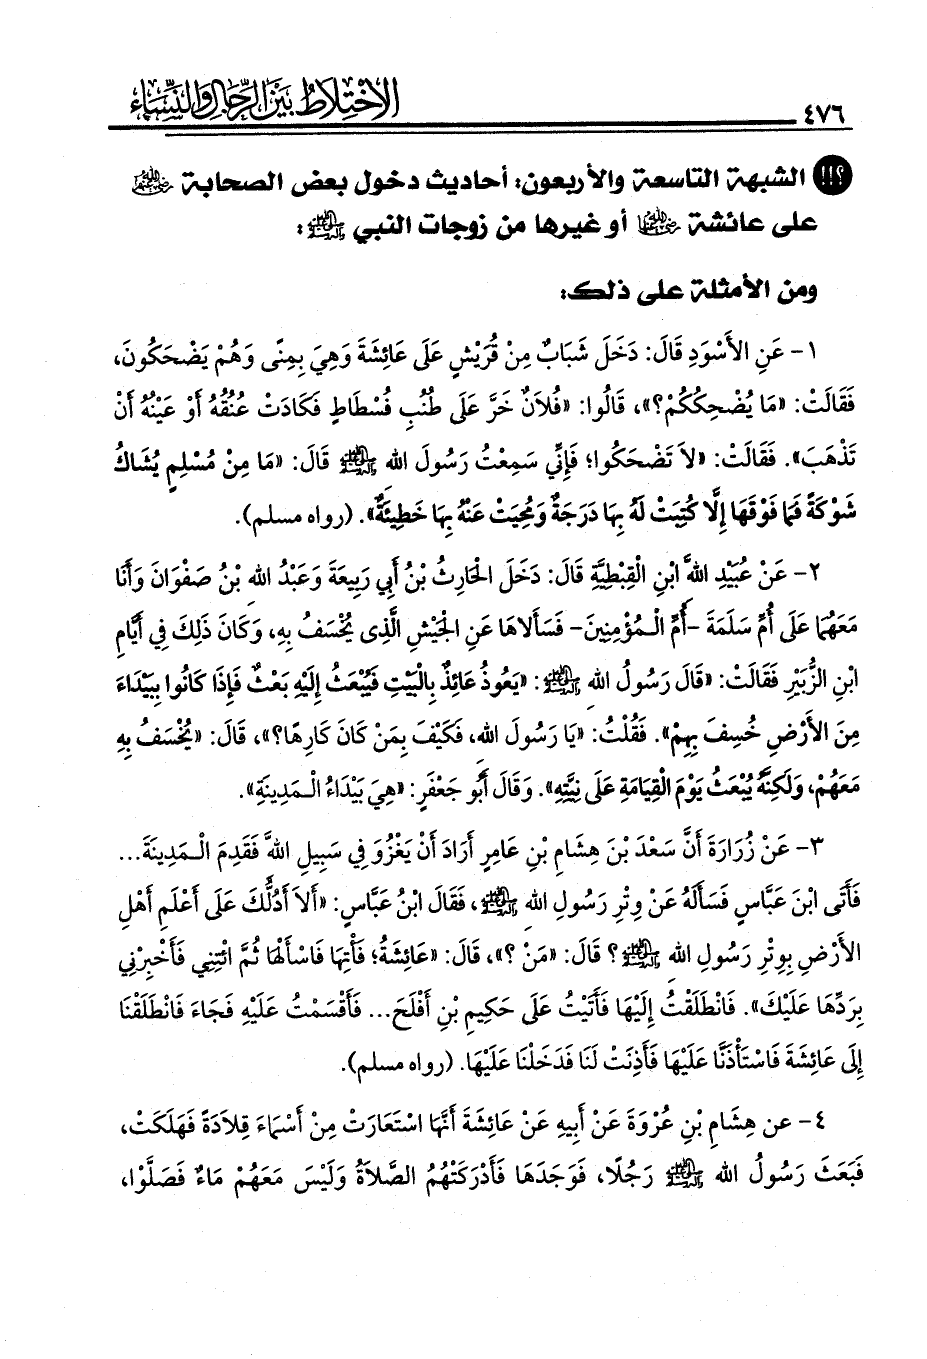 الاختلاط بين الرجال والنساء
٤٧٦
؟!! الشبهة التاسعة والأربعون: أحاديث دخول بعض الصحابة ﷺ
على عائشة رضي الله عنها أو غيرها من زوجات النبي ﷺ:
ومن الأمثلة على ذلك:
١- عَنِ الأَسْوَدِ قَالَ: دَخَلَ شَبَابٌ مِنْ قُرَيْشٍ عَلَى عَائِشَةَ وَهِيَ بِمِنًى وَهُمْ يَضْحَكُونَ،
فَقَالَتْ: «مَا يُضْحِكُكُمْ؟»، قَالُوا: «فُلاَنٌ خَرَّ عَلَى طُنُبِ فُسْطَاطٍ فَكَادَتْ عُنُقُهُ أَوْ عَيْنُهُ أَنْ
تَذْهَبَ». فَقَالَتْ: «لاَ تَضْحَكُوا؛ فَإِنِّي سَمِعْتُ رَسُولَ الله ﷺ قَالَ: «مَا مِنْ مُسْلِمٍ يُشَاكُ
شَوْكَةً فَمَا فَوْقَهَا إِلَّا كُتِبَتْ لَهُ بِهَا دَرَجَةٌ وَمُحِيَتْ عَنْهُ بِهَا خَطِيئَةٌ». (رواه مسلم).
٢- عَنْ عُبَيْدِ اللهِ ابْنِ الْقِبْطِيَّةِ قَالَ: دَخَلَ الْحَارِثُ بْنُ أَبِي رَبِيعَةَ وَعَبْدُ الله بْنُ صَفْوَانَ وَأَنَا
مَعَهُمَا عَلَى أُمِّ سَلَمَةَ -أُمِّ الْمُؤْمِنِينَ- فَسَأَلاَهَا عَنِ الْجَيْشِ الَّذِى يُخْسَفُ بِهِ، وَكَانَ ذَلِكَ فِي أَيَّامِ
ابْنِ الزُّبَيْرِ فَقَالَتْ: «قَالَ رَسُولُ الله ﷺ: «يَعُوذُ عَائِذٌ بِالْبَيْتِ فَيُبْعَثُ إِلَيْهِ بَعْثٌ فَإِذَا كَانُوا بِبَيْدَاءَ
مِنَ الأَرْضِ خُسِفَ بِهِمْ». فَقُلْتُ: «يَا رَسُولَ الله، فَكَيْفَ بِمَنْ كَانَ كَارِهًا؟»، قَالَ: «يُخْسَفُ بِهِ
مَعَهُمْ، وَلَكِنَّهُ يُبْعَثُ يَوْمَ الْقِيَامَةِ عَلَى نِيَّتِهِ». وَقَالَ أَبُو جَعْفَرٍ: «هِيَ بَيْدَاءُ الْمَدِينَةِ».
٣- عَنْ زُرَارَةَ أَنَّ سَعْدَ بْنَ هِشَامِ بْنِ عَامِرٍ أَرَادَ أَنْ يَغْزُوَ فِي سَبِيلِ اللهِ فَقَدِمَ الْمَدِينَةَ...
فَأَتَى ابْنَ عَبَّاسٍ فَسَأَلَهُ عَنْ وِتْرِ رَسُولِ الله ﷺ، فَقَالَ ابْنُ عَبَّاسٍ: «أَلاَ أَدُلُّكَ عَلَى أَعْلَمِ أَهْلِ
الأَرْضِ بِوِتْرِ رَسُولِ الله ﷺ؟ قَالَ: «مَنْ؟»، قَالَ: «عَائِشَةُ؛ فَأْتِهَا فَاسْأَلْهَا ثُمَّ ائْتِنِي فَأَخْبِرْنِي
بِرَدِّهَا عَلَيْكَ». فَانْطَلَقْتُ إِلَيْهَا فَأَتَيْتُ عَلَى حَكِيمِ بْنِ أَفْلَحَ... فَأَقْسَمْتُ عَلَيْهِ فَجَاءَ فَانْطَلَقْنَا
إِلَى عَائِشَةَ فَاسْتَأْذَنَّا عَلَيْهَا فَأَذِنَتْ لَنَا فَدَخَلْنَا عَلَيْهَا. (رواه مسلم).
٤- عن هِشَامِ بْنِ عُرْوَةَ عَنْ أَبِيهِ عَنْ عَائِشَةَ أَنَّهَا اسْتَعَارَتْ مِنْ أَسْمَاءَ قِلاَدَةً فَهَلَكَتْ،
فَبَعَثَ رَسُولُ الله ﷺ رَجُلًا، فَوَجَدَهَا فَأَدْرَكَتْهُمُ الصَّلاَةُ وَلَيْسَ مَعَهُمْ مَاءٌ فَصَلَّوْا،